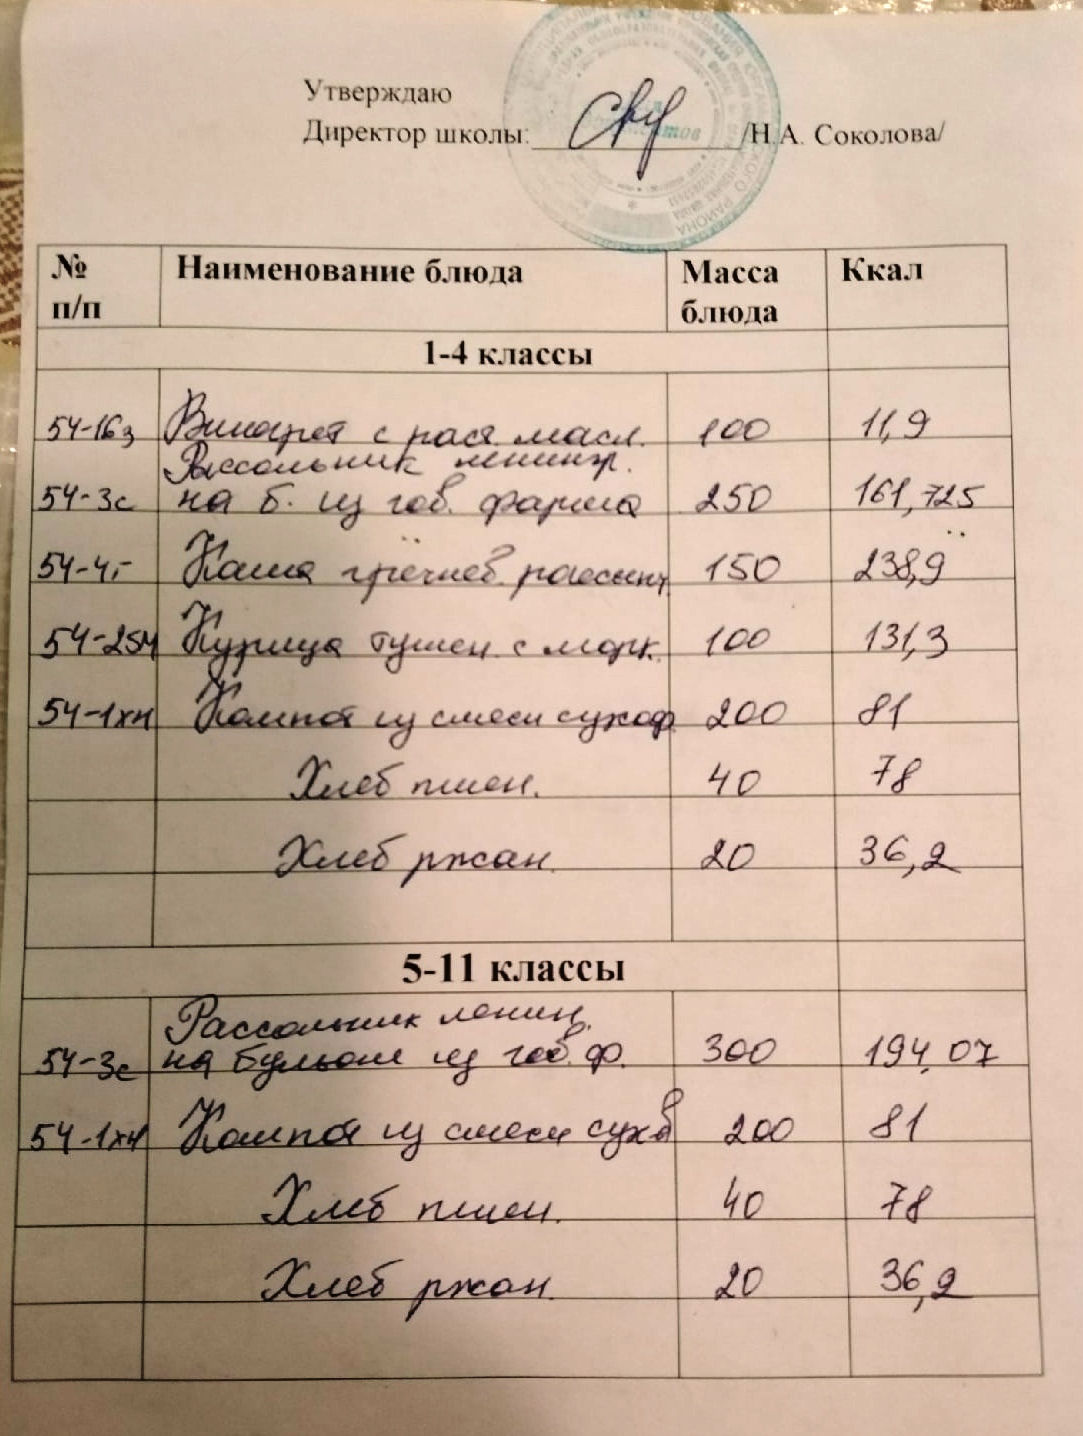 Утверждаю
Директор школы: /Н.А. Соколова/
№ п/п Наименование блюда Масса блюда Ккал
1-4 классы
54-16з Винегрет с раст. масл. 100 11,9
Рассольник ленингр.
54-3с на б. из гов. фарша 250 161,725
54-4г Каша гречнев. рассыпч 150 238,9
54-25м Курица тушен. с морк. 100 131,3
54-1хн Компот из смеси сухоф 200 81
Хлеб пшен. 40 78
Хлеб ржан. 20 36,2
5-11 классы
Рассольник ленин.
54-3с на бульон из гов. ф. 300 194,07
54-1хн Компот из смеси сухоф 200 81
Хлеб пшен. 40 78
Хлеб ржан. 20 36,2